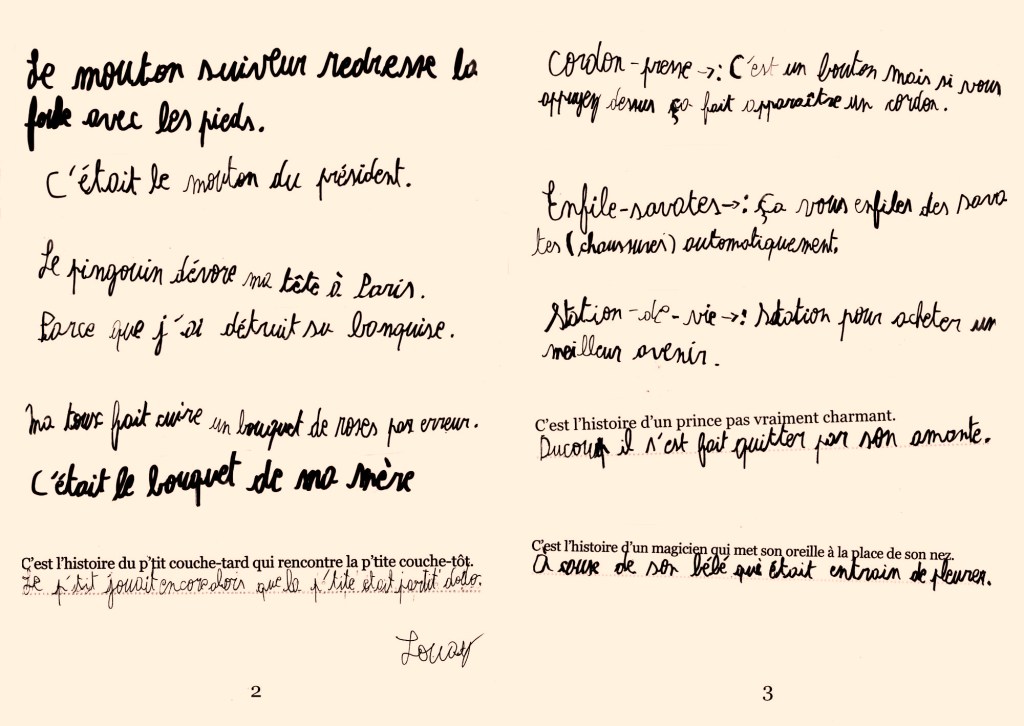 Le mouton suiveur redresse la
foule avec les pieds.
C'était le mouton du président.
Le pingouin dévore ma tête à Paris.
Parce que j'ai détruit sa banquise.
Ma toux fait cuire un bouquet de roses par erreur.
C'était le bouquet de ma mère
C'est l'histoire du p'tit couche-tard qui rencontre la p'tite couche-tôt.
Le p'tit jouait encore alors que la p'tite était partit dodo.
Louay
2
Cordon-presse →: C'est un bouton mais si vous
appuyez dessus ça fait apparaître un cordon.
Enfile-savates →: Ça vous enfiler des sava
tes (chaussures) automatiquement.
Station-de-vie →: Station pour acheter un
meilleur avenir.
C'est l'histoire d'un prince pas vraiment charmant.
Ducoup il s'est fait quitter par son amante.
C'est l'histoire d'un magicien qui met son oreille à la place de son nez.
À cause de son bébé qui était entrain de pleurer.
3